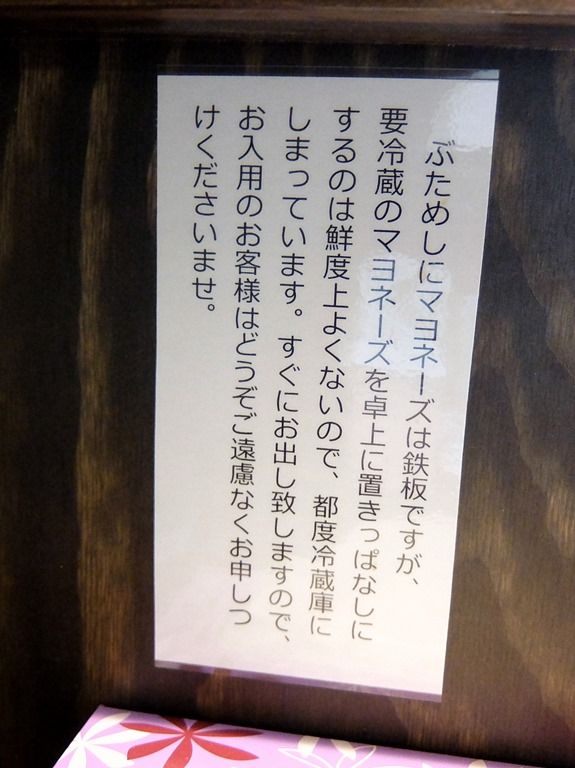 ぶためしにマヨネーズは鉄板ですが、
要冷蔵のマヨネーズを卓上に置きっぱなしに
するのは鮮度上よくないので、都度冷蔵庫に
しまっています。すぐにお出し致しますので、
お入用のお客様はどうぞご遠慮なくお申しつ
けくださいませ。